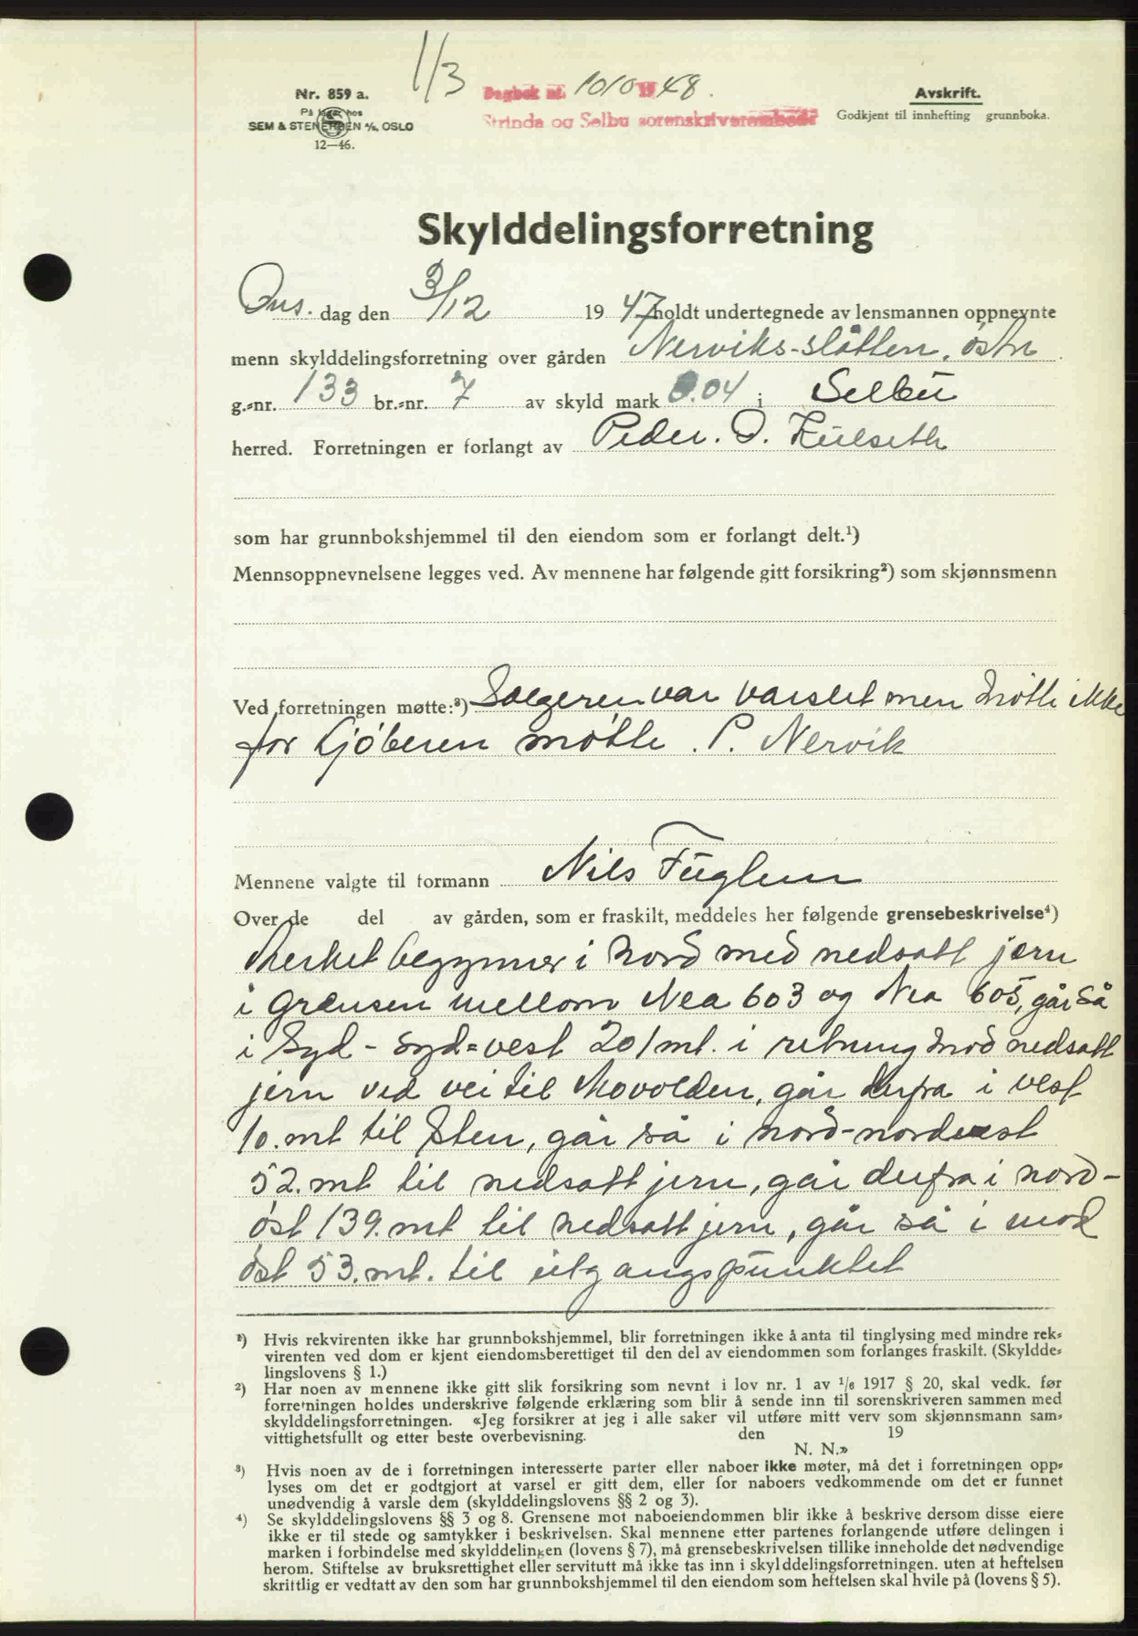 1/3
Nr. 859 a.
På lager hos
SEM & STENERSEN A/S, OSLO
12—46.
Dagbok nr. 1010 1948.
Strinda og Selbu sorenskriverembede
Avskrift.
Godkjent til innhefting grunnboka.
Skylddelingsforretning
Ons. dag den 3/12 1947 holdt undertegnede av lensmannen oppnevnte
menn skylddelingsforretning over gården Nerviks-slåtten, østre
g.-nr. 133 br.-nr. 7 av skyld mark 0.04 i Selbu
herred. Forretningen er forlangt av Peder. O. Kulseth
som har grunnbokshjemmel til den eiendom som er forlangt delt.¹)
Mennsoppnevnelsene legges ved. Av mennene har følgende gitt forsikring²) som skjønnsmenn
Ved forretningen møtte:³) Sælgeren var varslet men møtte ikke
for Kjøberen møtte P. Nervik
Mennene valgte til formann Nils Fuglem
Over de del av gården, som er fraskilt, meddeles her følgende grensebeskrivelse⁴)
Merket begynner i Nord med nedsatt jern
i Grænsen mellom Nea 603 og Nea 605, går så
i Syd - Syd=vest 201 mt. i retning mod nedsatt
jern ved vei til Movolden, går derfra i vest
10. mt til Sten, går så i nord-nordvest
52. mt til nedsatt jern, går derfra i nord-
øst 139. mt til nedsatt jern, går så i mod
øst 53. mt. til utgangspunktet
¹) Hvis rekvirenten ikke har grunnbokshjemmel, blir forretningen ikke å anta til tinglysing med mindre rek-
virenten ved dom er kjent eiendomsberettiget til den del av eiendommen som forlanges fraskilt. (Skyldde-
lingslovens § 1.)
²) Har noen av mennene ikke gitt slik forsikring som nevnt i lov nr. 1 av 1/6 1917 § 20, skal vedk. før
forretningen holdes underskrive følgende erklæring som blir å sende inn til sorenskriveren sammen med
skylddelingsforretningen. «Jeg forsikrer at jeg i alle saker vil utføre mitt verv som skjønnsmann sam-
vittighetsfullt og etter beste overbevisning. den 19
N. N.»
³) Hvis noen av de i forretningen interesserte parter eller naboer ikke møter, må det i forretningen opp-
lyses om det er godtgjort at varsel er gitt dem, eller for naboers vedkommende om det er funnet
unødvendig å varsle dem (skylddelingslovens §§ 2 og 3).
⁴) Se skylddelingslovens §§ 3 og 8. Grensene mot naboeiendommen blir ikke å beskrive dersom disse eiere
ikke er til stede og samtykker i beskrivelsen. Skal mennene etter partenes forlangende utføre delingen i
marken i forbindelse med skylddelingen (lovens § 7), må grensebeskrivelsen tillike inneholde det nødvendige
herom. Stiftelse av bruksrettighet eller servitutt må ikke tas inn i skylddelingsforretningen, uten at heftelsen
skriftlig er vedtatt av den som har grunnbokshjemmel til den eiendom som heftelsen skal hvile på (lovens § 5).